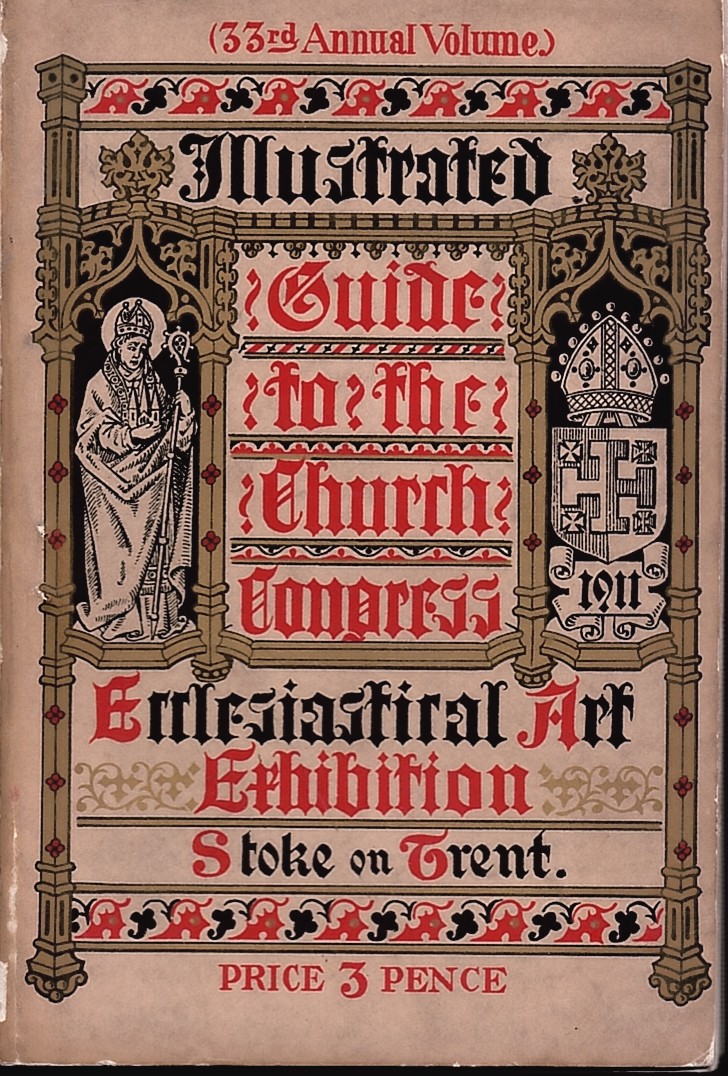 (33rd Annual Volume.)
Illustrated
Guide
to the
Church
Congress
1911
Ecclesiastical Art
Exhibition
Stoke on Trent.
PRICE 3 PENCE